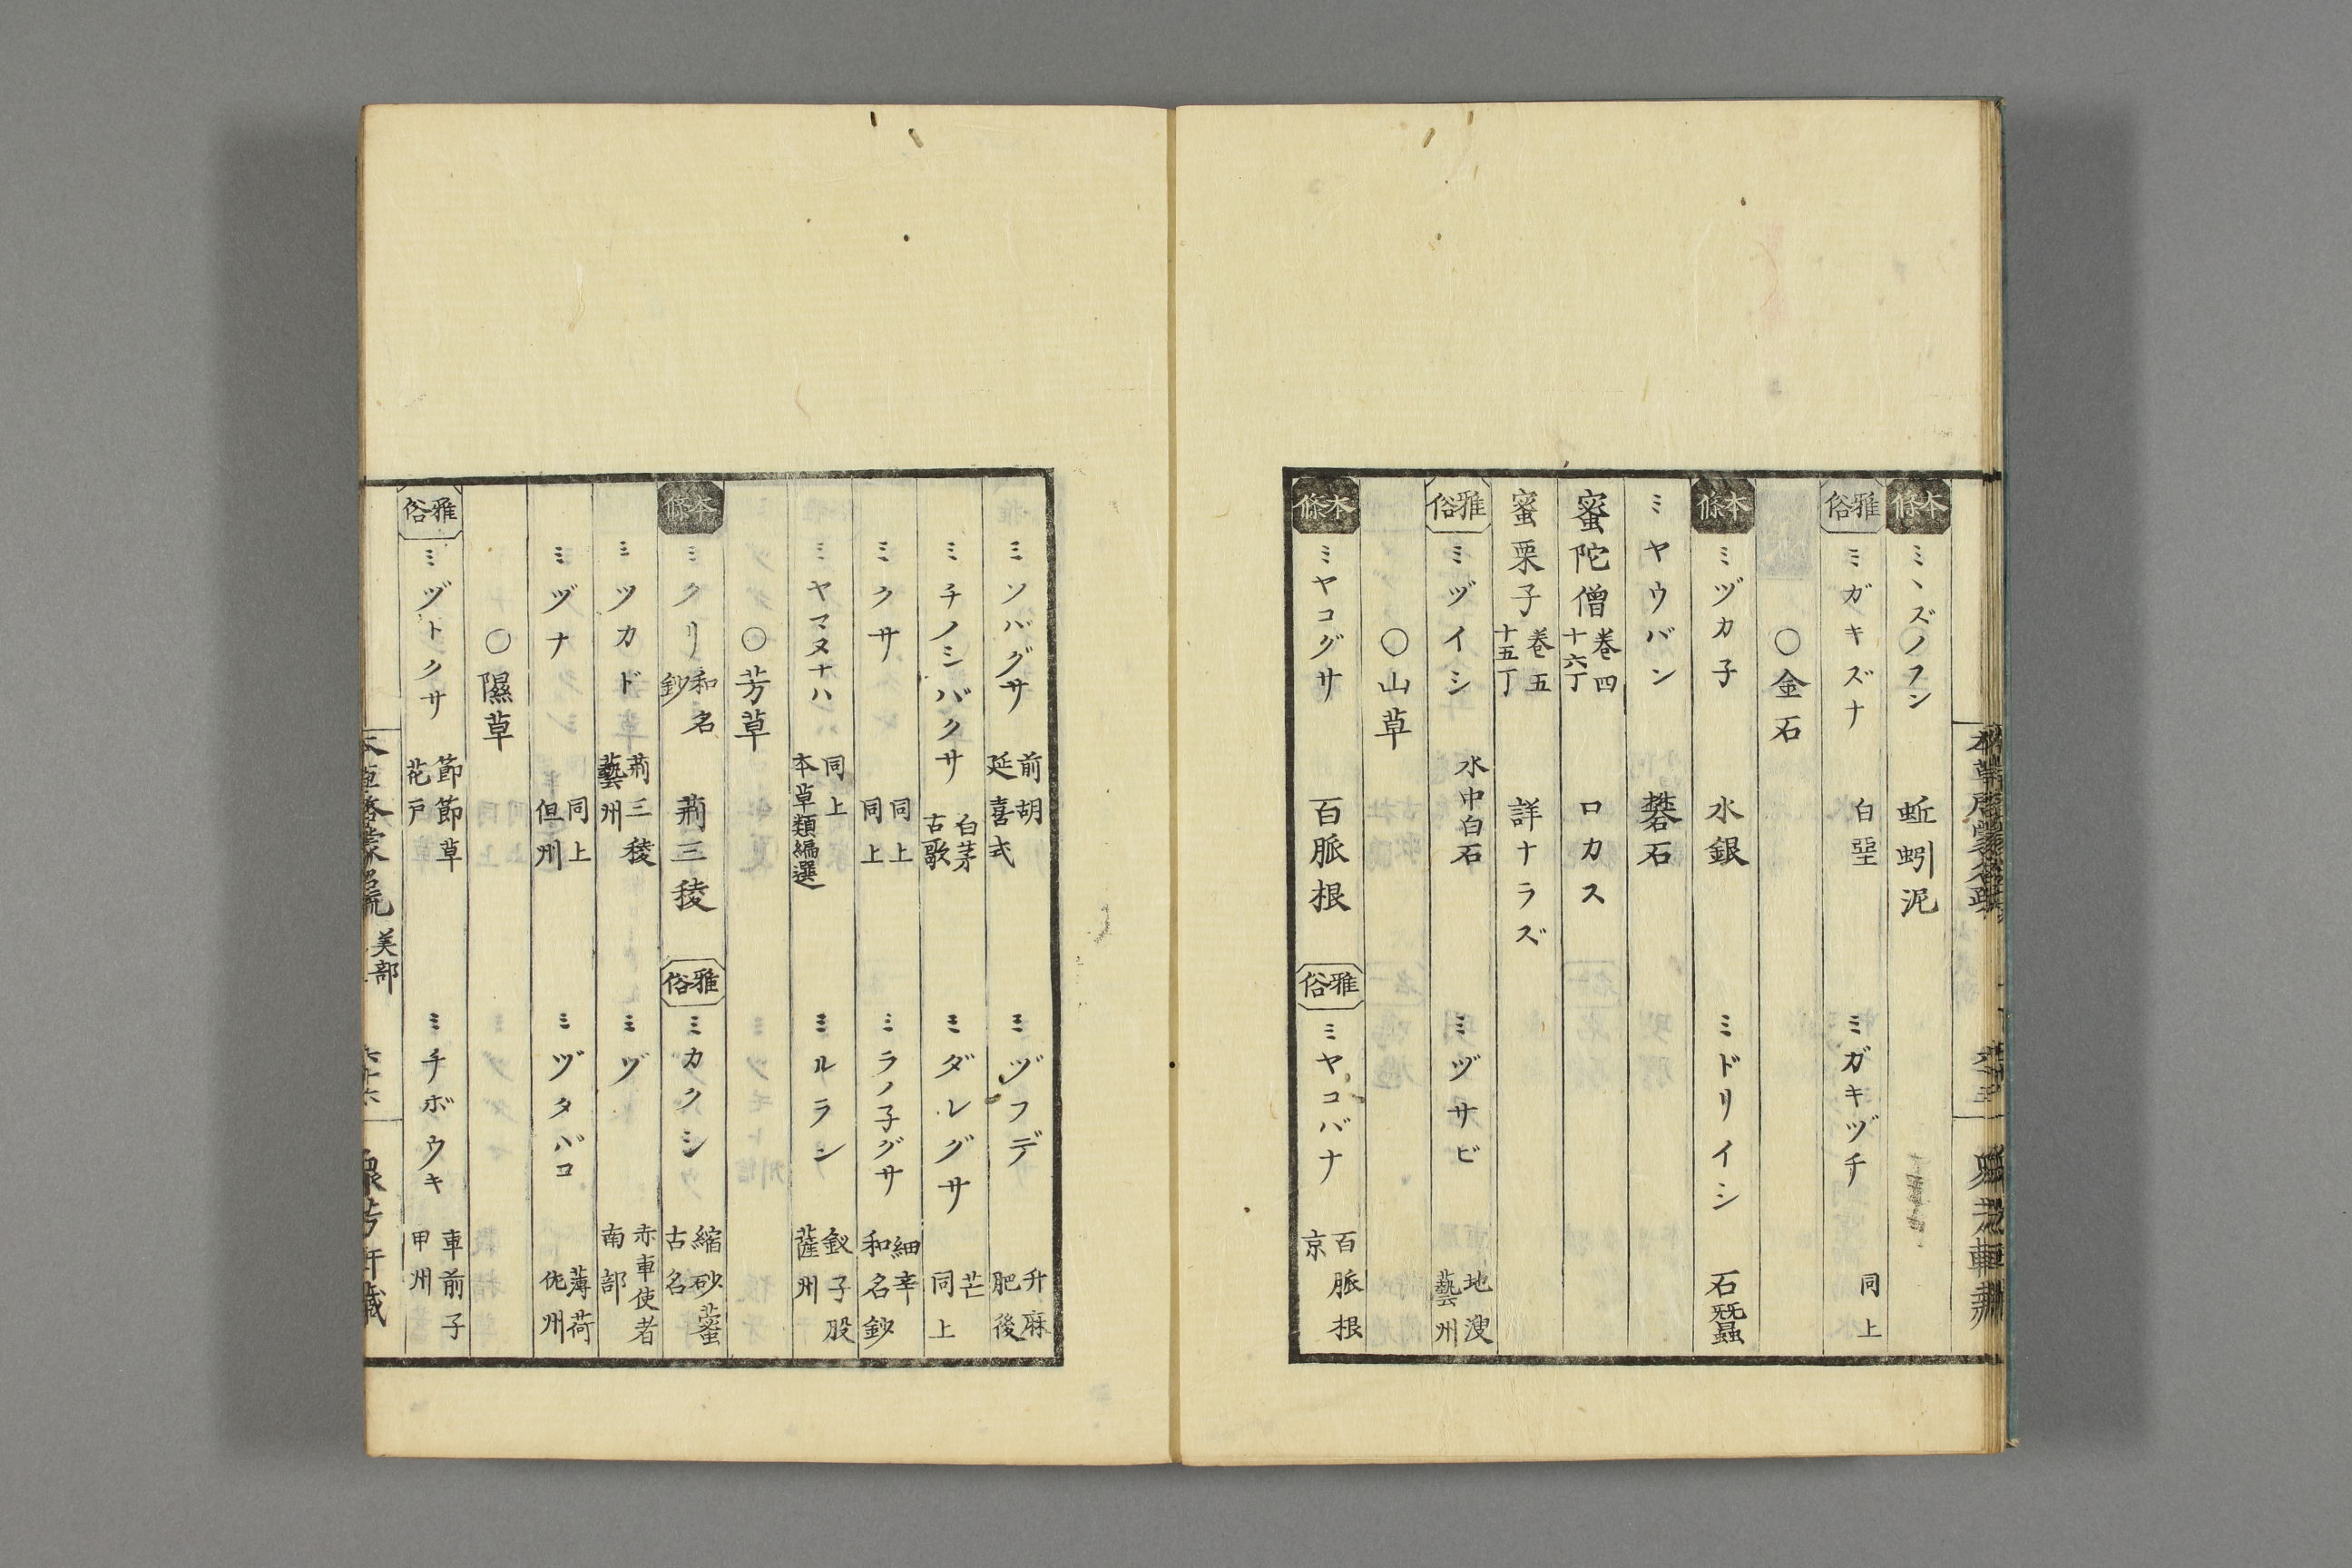 本條 ミヽズノフン 蚯蚓泥
雅俗 ミガキズナ 白堊 ミガキヅチ 同上
○金石
本條 ミヅカ子 水銀 ミドリイシ 石蠶
ミヤウバン 礬石
蜜陀僧 巻四十六丁 ロカス
蜜栗子 巻五十五丁 詳ナラズ
雅俗 ミヅイシ 水中白石 ミヅサビ 地溲 藝州
○山草
本條 ミヤコグサ 百脈根 雅俗 ミヤコバナ 百脈根 京
ミソハグサ 前胡 延喜式 ミヅフデ 升麻 肥後
ミチノシバクサ 白茅 古歌 ミダレグサ 芒 同上
ミクサ 同上 同上 ミラノ子グサ 細辛 和名鈔
ミヤマヌナハ 同上 本草類編選 ミルラン 釵子股 薩州
○芳草
本條 ミクリ 和名鈔 荊三稜 雅俗 ミカクシ 縮砂蔤 古名
ミツカド 荊三稜 藝州 ミヅ 赤車使者 南部
ミヅナ 同上 但州 ミヅタバコ 薄荷 佐州
○隰草
雅俗 ミヅトクサ 節節草 花戸 ミチボウキ 車前子 甲州
美部